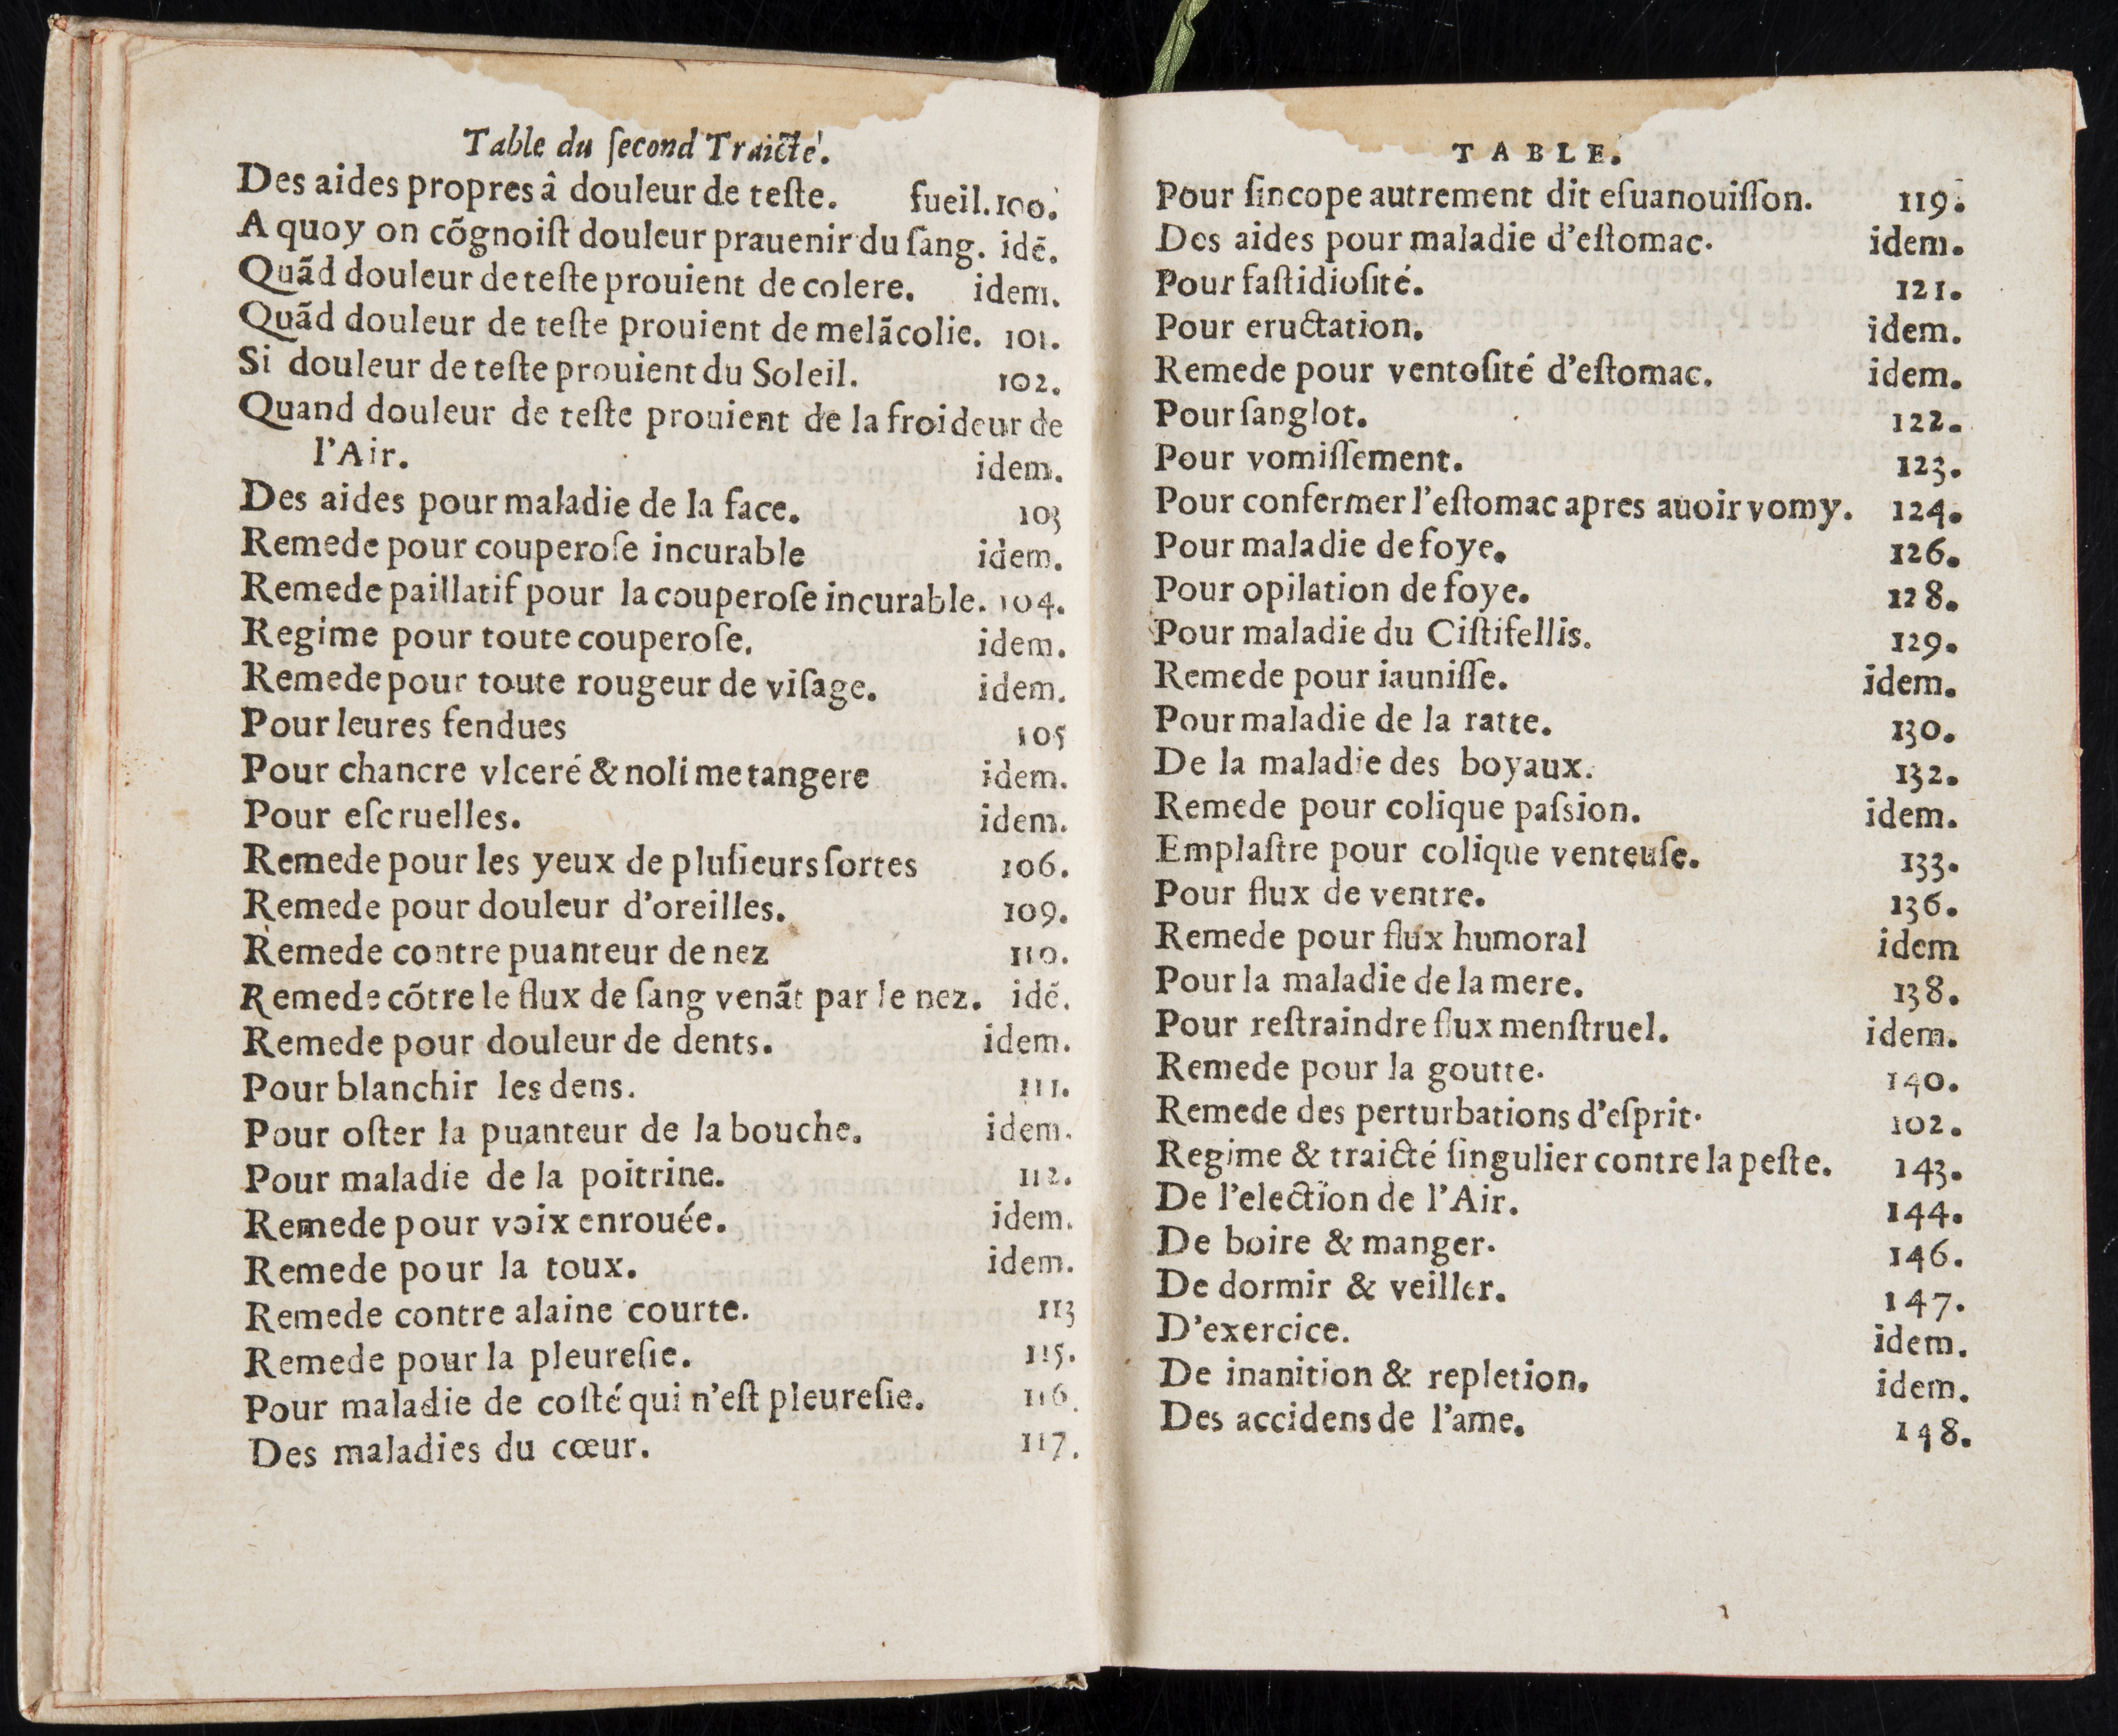 Table du ſecond Traicté.
Des aides propres â douleur de teſte. fueil.100.
A quoy on cõgnoiſt douleur prauenir du ſang. idẽ.
Quãd douleur de teſte prouient de colere. idem.
Quãd douleur de teſte prouient de melãcolie. 101.
Si douleur de teſte prouient du Soleil. 102.
Quand douleur de teſte prouient de la froideur de
l'Air. idem.
Des aides pour maladie de la face. 103
Remede pour couperoſe incurable idem.
Remede paillatif pour la couperoſe incurable. 104.
Regime pour toute couperoſe. idem.
Remede pour toute rougeur de viſage. idem.
Pour leures fendues 105
Pour chancre vlceré & noli me tangere idem.
Pour eſcruelles. idem.
Remede pour les yeux de pluſieurs ſortes 106.
Remede pour douleur d'oreilles. 109.
Remede contre puanteur de nez 110.
Remede cõtre le flux de ſang venãt par le nez. idẽ.
Remede pour douleur de dents. idem.
Pour blanchir les dens. 111.
Pour oſter la puanteur de la bouche. idem.
Pour maladie de la poitrine. 112.
Remede pour voix enrouée. idem.
Remede pour la toux. idem.
Remede contre alaine courte. 113
Remede pour la pleureſie. 115.
Pour maladie de coſté qui n'eſt pleureſie. 116.
Des maladies du cœur. 117.
TABLE.
Pour ſincope autrement dit eſuanouiſſon. 119.
Des aides pour maladie d'eſtomac. idem.
Pour faſtidioſité. 121.
Pour eructation. idem.
Remede pour ventoſité d'eſtomac. idem.
Pour ſanglot. 122.
Pour vomiſſement. 123.
Pour confermer l'eſtomac apres auoir vomy. 124.
Pour maladie de foye. 126.
Pour opilation de foye. 128.
Pour maladie du Ciſtifellis. 129.
Remede pour iauniſſe. idem.
Pour maladie de la ratte. 130.
De la maladie des boyaux. 132.
Remede pour colique paſsion. idem.
Emplaſtre pour colique venteuſe. 133.
Pour flux de ventre. 136.
Remede pour flux humoral idem
Pour la maladie de la mere. 138.
Pour reſtraindre flux menſtruel. idem.
Remede pour la goutte. 140.
Remede des perturbations d'eſprit. 102.
Regime & traicté ſingulier contre la peſte. 143.
De l'election de l'Air. 144.
De boire & manger. 146.
De dormir & veiller. 147.
D'exercice. idem.
De inanition & repletion. idem.
Des accidens de l'ame. 148.